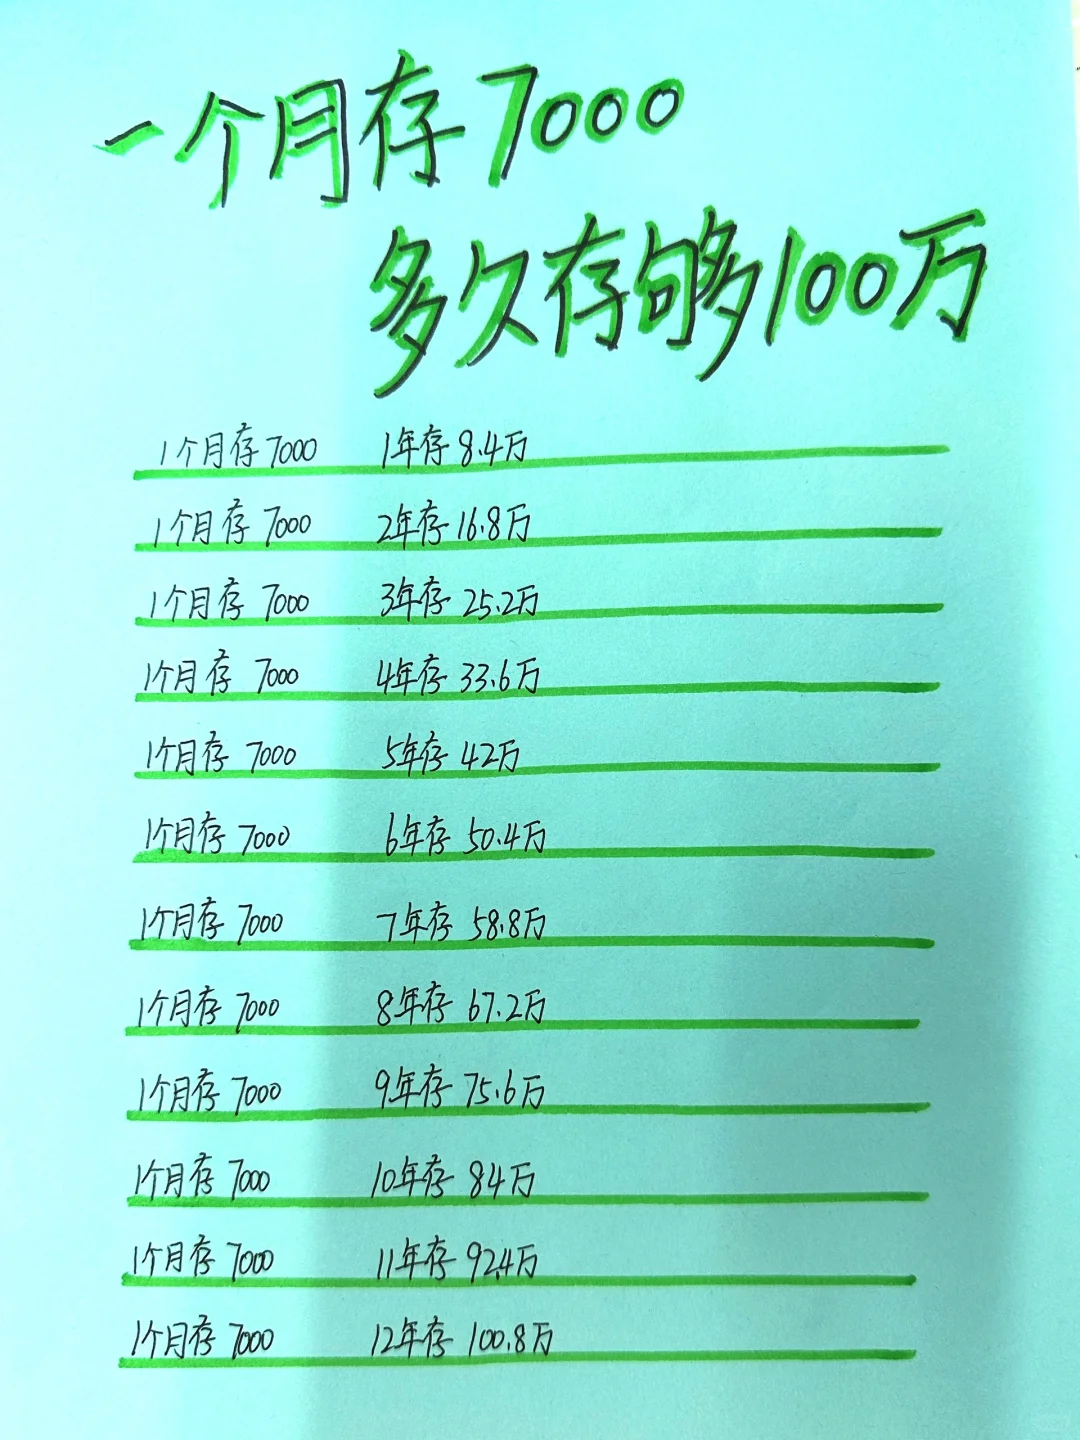 一个月存7000
多久存够100万
1个月存7000 1年存8.4万
1个月存7000 2年存16.8万
1个月存7000 3年存25.2万
1个月存7000 4年存33.6万
1个月存7000 5年存42万
1个月存7000 6年存50.4万
1个月存7000 7年存58.8万
1个月存7000 8年存67.2万
1个月存7000 9年存75.6万
1个月存7000 10年存84万
1个月存7000 11年存92.4万
1个月存7000 12年存100.8万